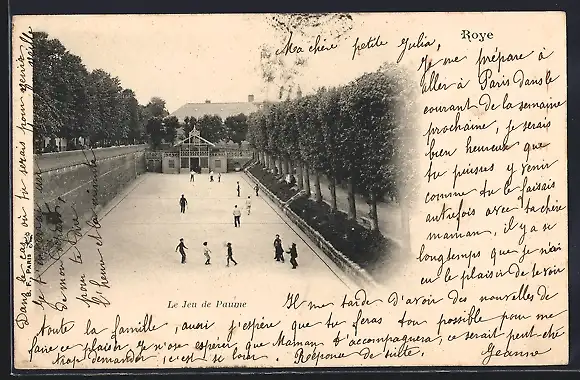 Roye
Ma chère petite Julia,
Je me prépare à
aller à Paris dans le
courant de la semaine
prochaine, je serais
bien heureuse que
tu puisses y venir
comme tu le faisais
autrefois avec ta chère
maman, il y a si
longtemps que je n'ai
eu le plaisir de te voir
Il me tarde d'avoir des nouvelles de
toute la famille, aussi j'espère, que tu feras ton possible pour me
faire ce plaisir, je n'ose espérer, que Maman t'accompagnera, ce serait peut-être
trop demander, c'est si loin. Réponse de suite. Jeanne
Le Jeu de Paume
B. F., PARIS
Dans le cas où tu serais pour venir
je
de mon
pour te
l'heure